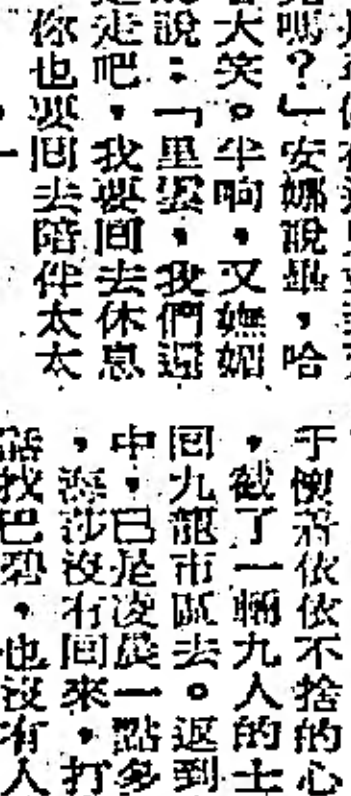 嗎？」安娜說畢，哈
大笑。半晌，又嫵媚
說：「里，我們還
走吧，我要回去休息
你也要回去陪伴太太
于懷着依依不捨的心
，截了一輛九人的士
回九龍市區去。返到
中，已是凌晨一點多
，海莎沒有回來，打
話找巴碧，也沒有人